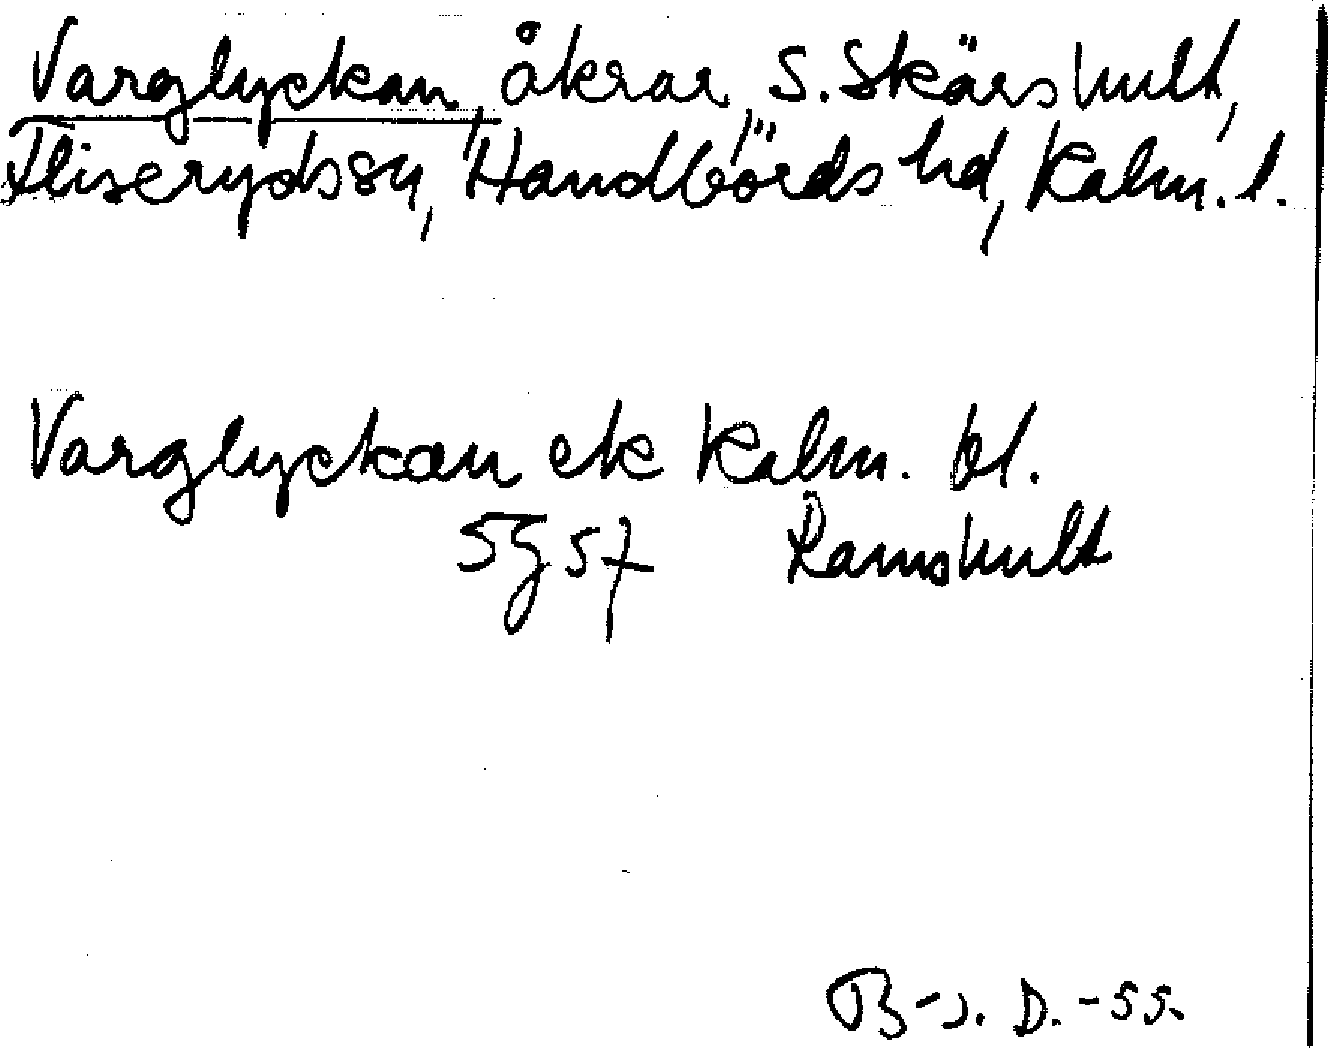 Varglyckan, åkrar, S. Skärshult,
Fliseryds sn, Handbörds hd, Kalm. l.
Varglyckan ek Kalm. bl.
5G 57 Ramshult
B-J. D. -55.